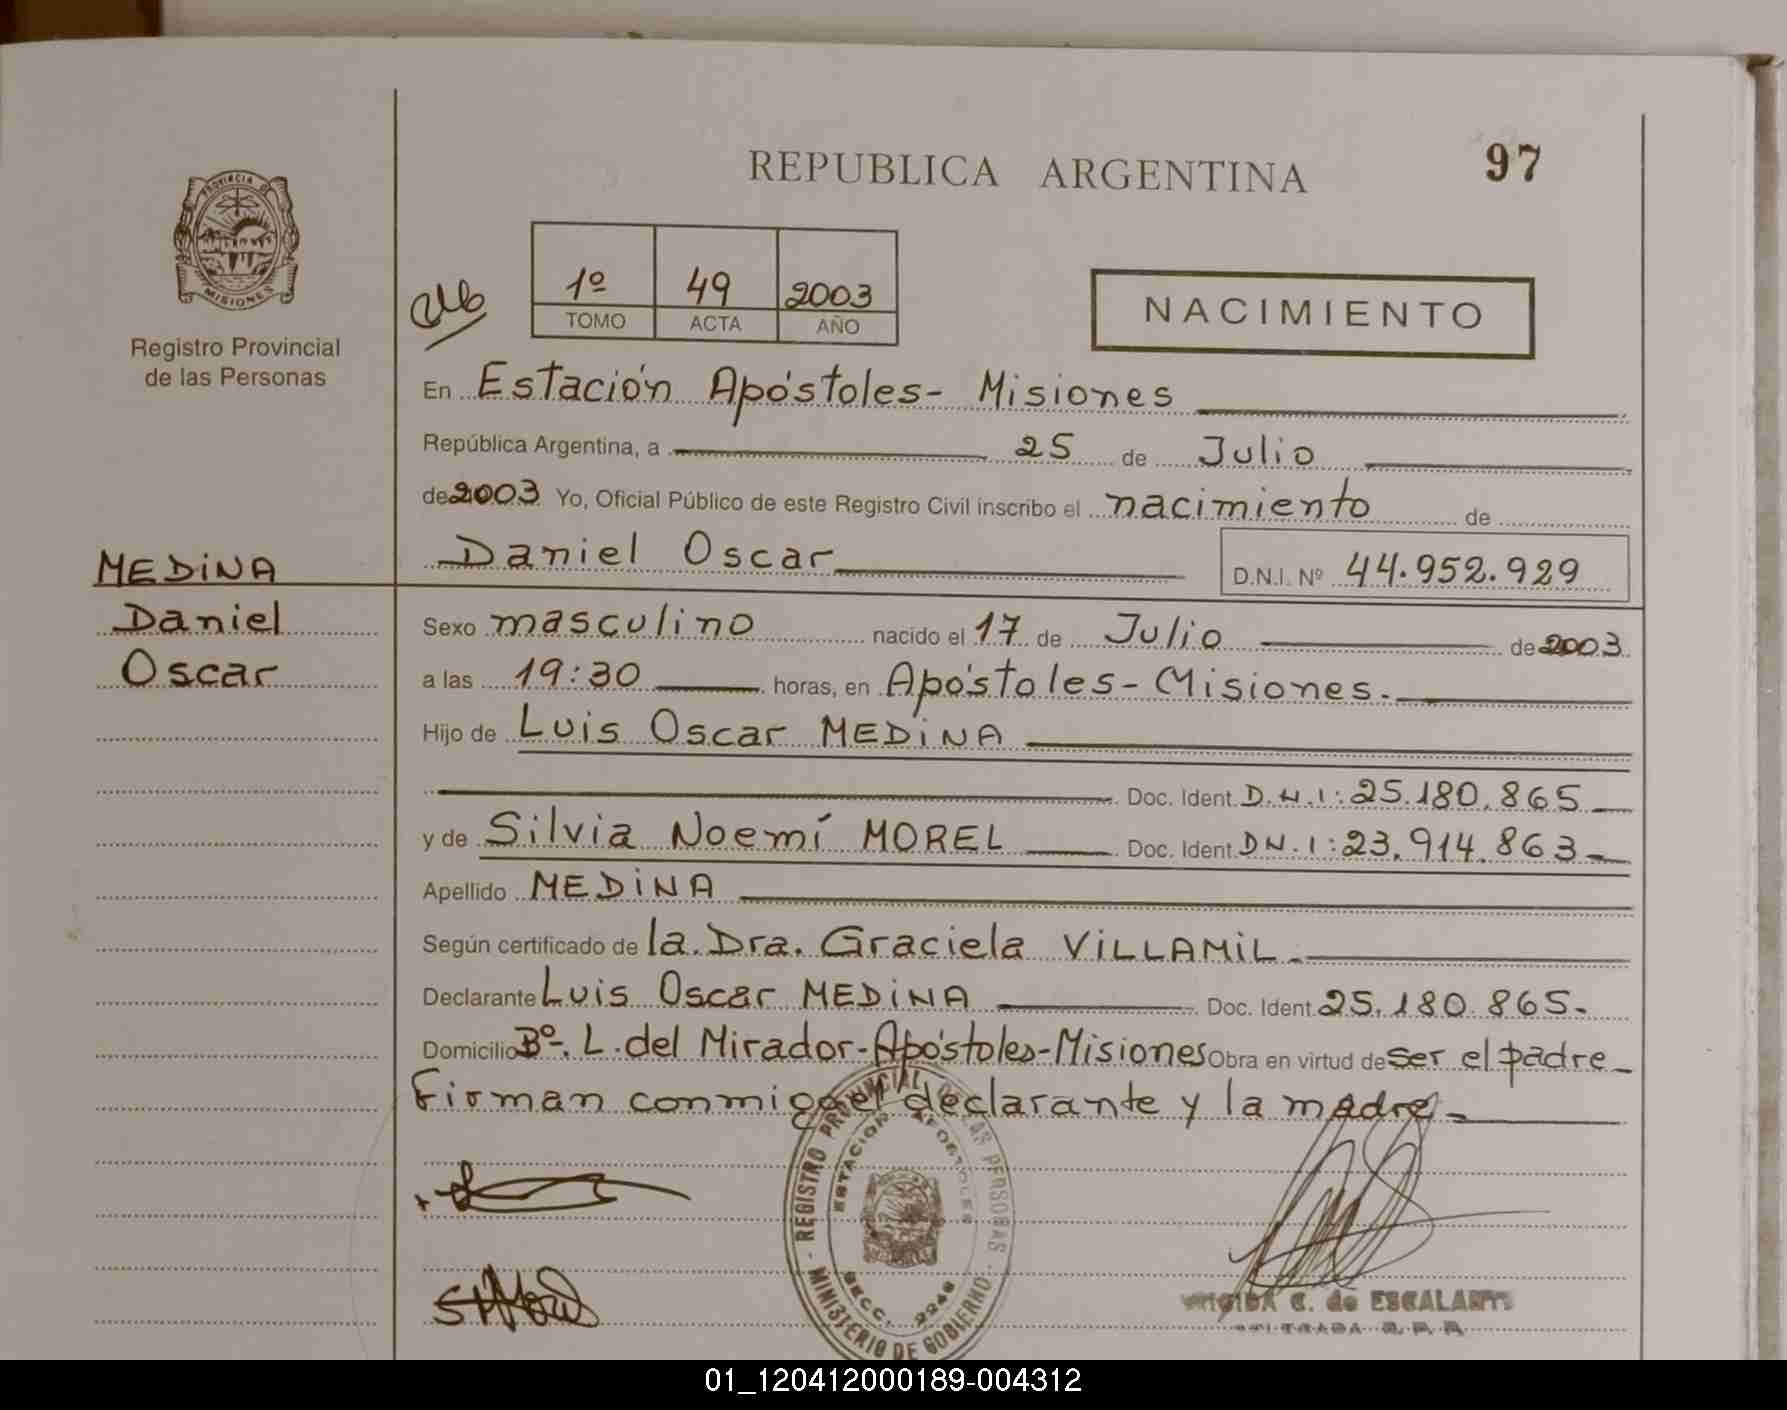 REPUBLICA ARGENTINA
97
PROVINCIA DE
MISIONES
Registro Provincial
de las Personas
1º 49 2003
TOMO ACTA AÑO
NACIMIENTO
En Estación Apóstoles- Misiones
República Argentina, a 25 de Julio
de 2003 Yo, Oficial Público de este Registro Civil inscribo el nacimiento de
Daniel Oscar D.N.I. Nº 44.952.929
MEDINA
Daniel
Oscar
Sexo masculino nacido el 17 de Julio de 2003
a las 19:30 horas, en Apóstoles - Misiones.
Hijo de Luis Oscar MEDINA
Doc. Ident. D.N.I: 25.180.865
y de Silvia Noemí MOREL Doc. Ident. DN.I: 23.914.863
Apellido MEDINA
Según certificado de la Dra. Graciela VILLAMIL.
Declarante Luis Oscar MEDINA Doc. Ident. 25.180.865.
Domicilio Bº. L. del Mirador-Apóstoles-Misiones Obra en virtud de ser el padre
Firman conmigo el declarante y la madre
REGISTRO PROVINCIAL DE LAS PERSONAS
ESTACION APOSTOLES
SECC. 2246
MINISTERIO DE GOBIERNO
C. de ESCALANTE
01_120412000189-004312